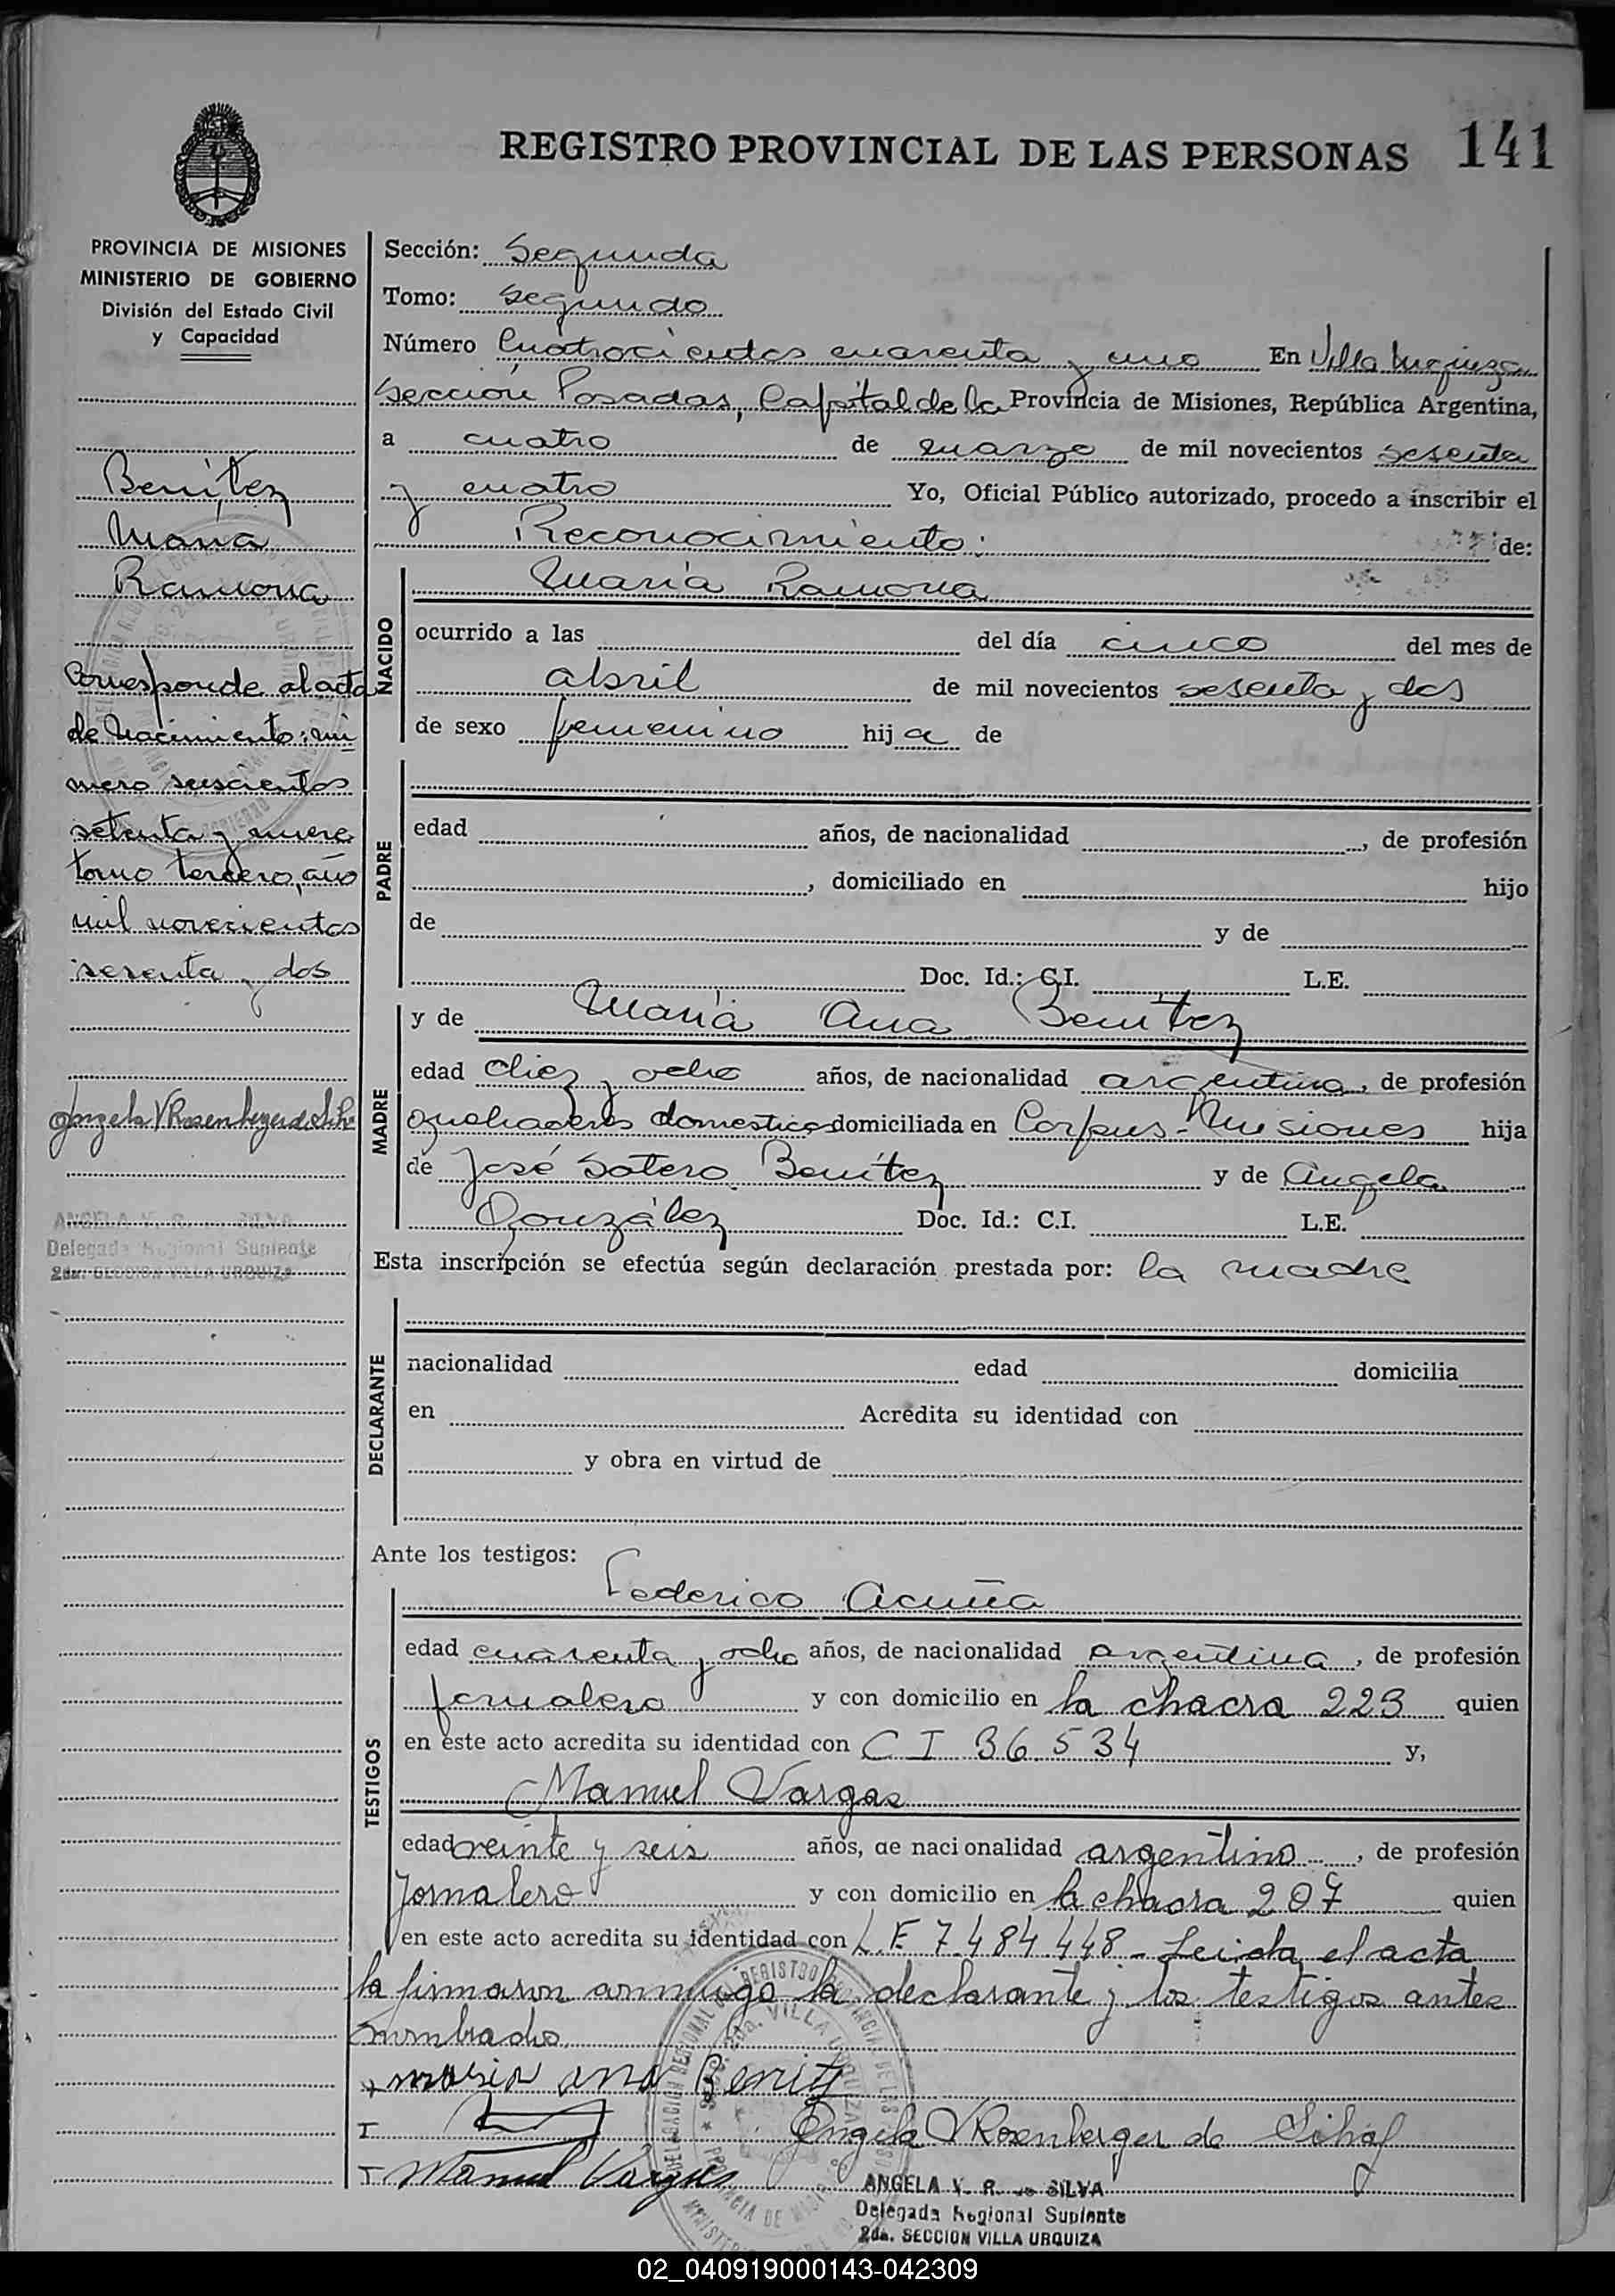 REGISTRO PROVINCIAL DE LAS PERSONAS 141
PROVINCIA DE MISIONES
MINISTERIO DE GOBIERNO
División del Estado Civil
y Capacidad
Benítez
María
Ramona
Corresponde al acta
de nacimiento: nú
mero seiscientos
setenta y nueve
tomo tercero, año
mil novecientos
sesenta y dos
Angela V Rosenberger de Silva
ANGELA V. R. de SILVA
Delegada Regional Suplente
2da. SECCION VILLA URQUIZA
Sección: Segunda
Tomo: Segundo
Número Cuatrocientos cuarenta y uno En Villa Urquiza
Sección Posadas, Capital de la Provincia de Misiones, República Argentina,
a cuatro de marzo de mil novecientos sesenta
y cuatro Yo, Oficial Público autorizado, procedo a inscribir el
Reconocimiento: de:
NACIDO
María Ramona
ocurrido a las del día cinco del mes de
abril de mil novecientos sesenta y dos
de sexo femenino hija de
PADRE
edad años, de nacionalidad , de profesión
, domiciliado en hijo
de y de
Doc. Id.: C.I. L.E.
MADRE
y de María Ana Benítez
edad diez y ocho años, de nacionalidad argentina, de profesión
quehaceres domesticos domiciliada en Corpus-Misiones hija
de José Sotero Benítez y de Angela
González Doc. Id.: C.I. L.E.
Esta inscripción se efectúa según declaración prestada por: la madre
DECLARANTE
nacionalidad edad domicilia
en Acredita su identidad con
y obra en virtud de
Ante los testigos:
TESTIGOS
Federico Acuña
edad cuarenta y ocho años, de nacionalidad argentina, de profesión
jornalero y con domicilio en la chacra 223 quien
en este acto acredita su identidad con C I 36.534 y,
Manuel Vargas
edad veinte y seis años, de nacionalidad argentino, de profesión
Jornalero y con domicilio en la chacra 207 quien
en este acto acredita su identidad con L.E 7.484.448 - Leida el acta
la firmaron conmigo la declarante y los testigos antes
nombrados.
+ maria ana Benitz
T Angela V Rosenberger de Silva
T Manuel Vargas
ANGELA V. R. de SILVA
Delegada Regional Suplente
2da. SECCION VILLA URQUIZA
02_040919000143-042309